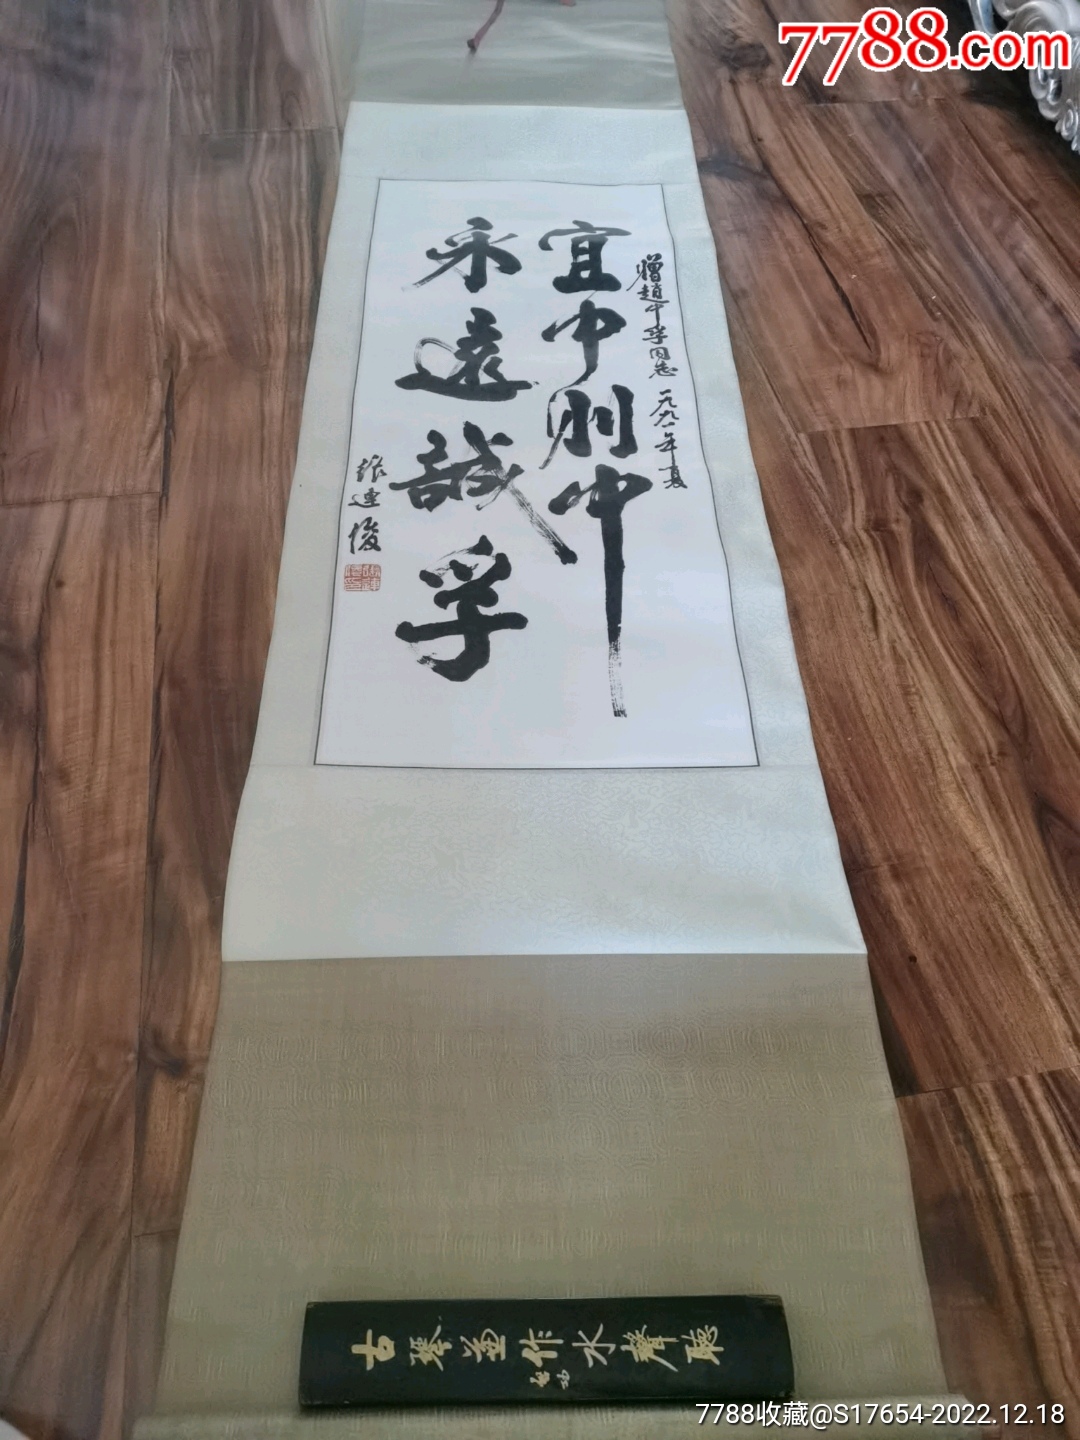 7788.com
贈趙中孚同志 一九九一年夏
宜中則中
永遠誠孚
張連俊
古琴並作水聲聽
啟功
7788收藏@S17654-2022.12.18